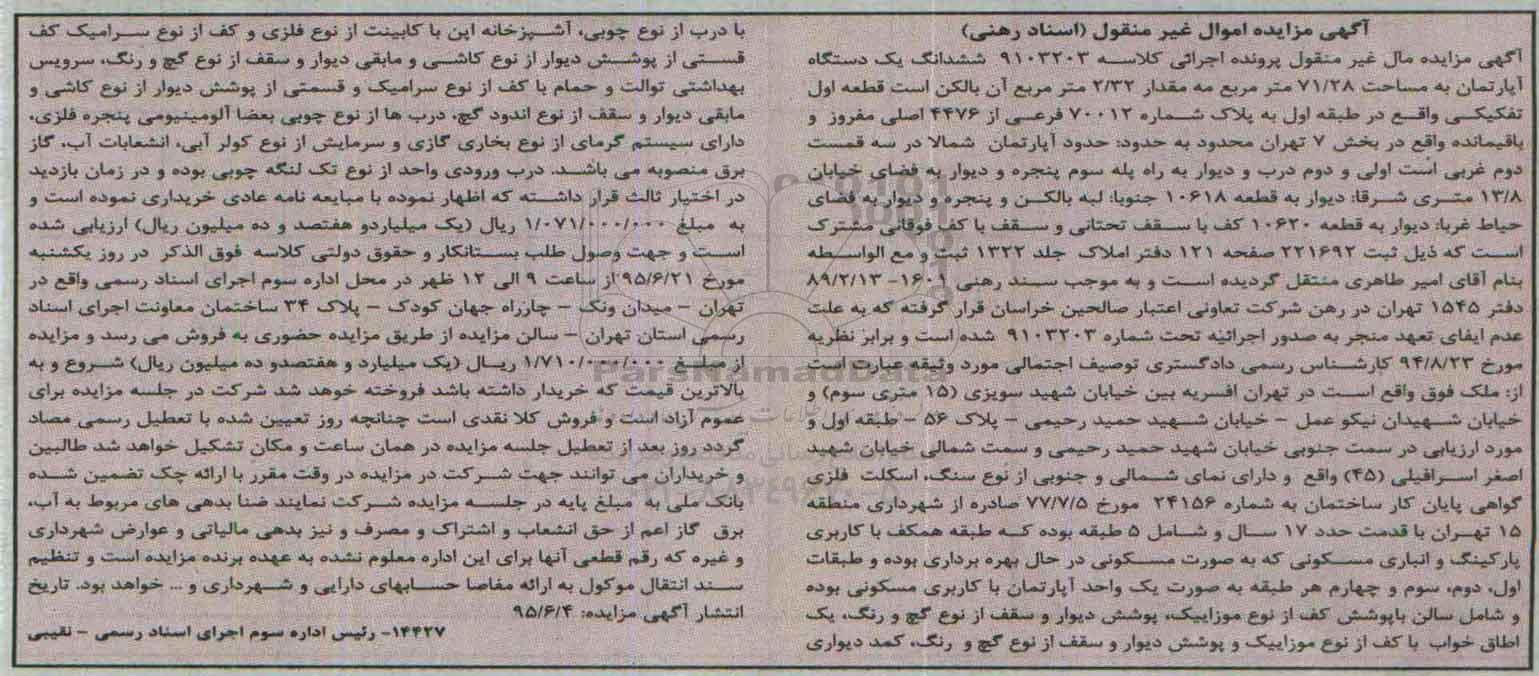 آگهی مزایده اموال غیر منقول (اسناد رهنی)
آگهی مزایده مال غیر منقول پرونده اجرائی کلاسه ۹۱۰۳۲۰۳ ششدانگ یک دستگاه
آپارتمان به مساحت ۷۱/۲۸ متر مربع مه مقدار ۲/۳۲ متر مربع آن بالکن است قطعه اول
تفکیکی واقع در طبقه اول به پلاک شماره ۷۰۰۱۲ فرعی از ۴۴۷۶ اصلی مفروز و
باقیمانده واقع در بخش ۷ تهران محدود به حدود: حدود آپارتمان شمالا در سه قسمت
دوم غربی است اولی و دوم درب و دیوار به راه پله سوم پنجره و دیوار به فضای خیابان
۱۳/۸ متری شرقا: دیوار به قطعه ۱۰۶۱۸ جنوبا: لبه بالکن و پنجره و دیوار به فضای
حیاط غربا: دیوار به قطعه ۱۰۶۲۰ کف با سقف تحتانی و سقف با کف فوقانی مشترک
است که ذیل ثبت ۲۲۱۶۹۲ صفحه ۱۲۱ دفتر املاک جلد ۱۳۲۲ ثبت و مع الواسطه
بنام آقای امیر طاهری منتقل گردیده است و به موجب سند رهنی ۱۶۰۱- ۸۹/۲/۱۳
دفتر ۱۵۴۵ تهران در رهن شرکت تعاونی اعتبار صالحین خراسان قرار گرفته که به علت
عدم ایفای تعهد منجر به صدور اجرائیه تحت شماره ۹۱۰۳۲۰۳ شده است و برابر نظریه
مورخ ۹۴/۸/۲۳ کارشناس رسمی دادگستری توصیف اجتمالی مورد وثیقه عبارت است
از: ملک فوق واقع است در تهران افسریه بین خیابان شهید سویزی (۱۵ متری سوم) و
خیابان شهیدان نیکو عمل – خیابان شهید حمید رحیمی – پلاک ۵۶ – طبقه اول و
مورد ارزیابی در سمت جنوبی خیابان شهید حمید رحیمی و سمت شمالی خیابان شهید
اصغر اسرافیلی (۴۵) واقع و دارای نمای شمالی و جنوبی از نوع سنگ، اسکلت فلزی
گواهی پایان کار ساختمان به شماره ۲۴۱۵۶ مورخ ۷۷/۷/۵ صادره از شهرداری منطقه
۱۵ تهران با قدمت حدد ۱۷ سال و شامل ۵ طبقه بوده که طبقه همکف با کاربری
پارکینگ و انباری مسکونی که به صورت مسکونی در حال بهره برداری بوده و طبقات
اول، دوم، سوم و چهارم هر طبقه به صورت یک واحد آپارتمان با کاربری مسکونی بوده
و شامل سالن باپوشش کف از نوع موزاییک، پوشش دیوار و سقف از نوع گچ و رنگ، یک
اطاق خواب با کف از نوع موزاییک و پوشش دیوار و سقف از نوع گچ و رنگ، کمد دیواری
با درب از نوع چوبی، آشپزخانه اپن با کابینت از نوع فلزی و کف از نوع سرامیک کف
قستی از پوشش دیوار از نوع کاشی و مابقی دیوار و سقف از نوع گچ و رنگ، سرویس
بهداشتی توالت و حمام با کف از نوع سرامیک و قسمتی از پوشش دیوار از نوع کاشی و
مابقی دیوار و سقف از نوع اندود گچ، درب ها از نوع چوبی بعضا آلومینیومی پنجره فلزی،
دارای سیستم گرمای از نوع بخاری گازی و سرمایش از نوع کولر آبی، انشعابات آب، گاز
برق منصوبه می باشد. درب ورودی واحد از نوع تک لنگه چوبی بوده و در زمان بازدید
در اختیار ثالث قرار داشته که اظهار نموده با مبایعه نامه عادی خریداری نموده است و
به مبلغ ۱/۰۷۱/۰۰۰/۰۰۰ ریال (یک میلیاردو هفتصد و ده میلیون ریال) ارزیابی شده
است و جهت وصول طلب بستانکار و حقوق دولتی کلاسه فوق الذکر در روز یکشنبه
مورخ ۹۵/۶/۲۱ از ساعت ۹ الی ۱۲ ظهر در محل اداره سوم اجرای اسناد رسمی واقع در
تهران – میدان ونک – چارراه جهان کودک – پلاک ۳۴ ساختمان معاونت اجرای اسناد
رسمی استان تهران – سالن مزایده از طریق مزایده حضوری به فروش می رسد و مزایده
از مبلغ ۱/۷۱۰/۰۰۰/۰۰۰ ریال (یک میلیارد و هفتصدو ده میلیون ریال) شروع و به
بالاترین قیمت که خریدار داشته باشد فروخته خوهد شد شرکت در جلسه مزایده برای
عموم آزاد است و فروش کلا نقدی است چنانچه روز تعیین شده با تعطیل رسمی مصاد
گردد روز بعد از تعطیل جلسه مزایده در همان ساعت و مکان تشکیل خواهد شد طالبین
و خریداران می توانند جهت شرکت در مزایده در وقت مقرر با ارائه چک تضمین شده
بانک ملی به مبلغ پایه در جلسه مزایده شرکت نمایند ضنا بدهی های مربوط به آب،
برق گاز اعم از حق انشعاب و اشتراک و مصرف و نیز بدهی مالیاتی و عوارض شهرداری
و غیره که رقم قطعی آنها برای این اداره معلوم نشده به عهده برنده مزایده است و تنظیم
سند انتقال موکول به ارائه مفاصا حسابهای دارایی و شهرداری و ... خواهد بود. تاریخ
انتشار آگهی مزایده: ۹۵/۶/۴
۱۴۴۲۷- رئیس اداره سوم اجرای اسناد رسمی – نقیبی
ParsNamadData